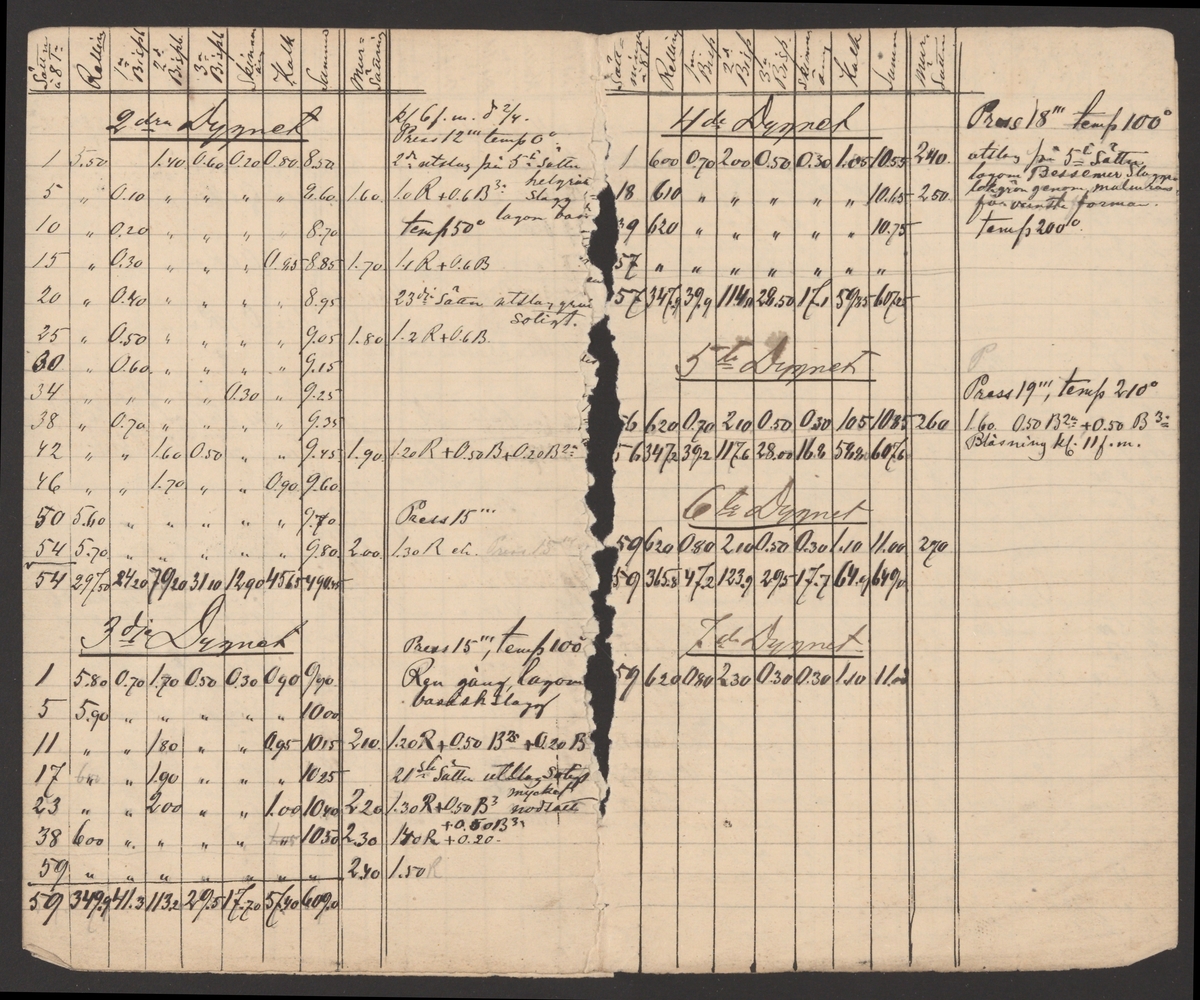 Sätt à 8 Tr Relling 1a Bispb. 2a Bispb. 3a Bispb. Skinn Kalk Summa Mur-Sättning
2dra Dygnet
kl 6 f. m. d 2/4.
Press 12''' temp 0°
1 5.50 1.40 0.60 0.20 0.80 8.50 2a utslag på 5te Sätten
helgrå Slagg
5 " 0.10 " " " " 8.60 1.60 1.0 R + 0.6 B 3a
lagom bas
10 " 0.20 " " " " 8.70 temp 50°
15 " 0.30 " " " 0.85 8.85 1.70 1.1 R + 0.6 B
20 " 0.40 " " " " 8.95 23dje Sätten utslag grå
Sotigt.
25 " 0.50 " " " " 9.05 1.80 1.2 R + 0.6 B.
30 " 0.60 " " " " 9.15
34 " " " " 0.30 " 9.25
38 " 0.70 " " " " 9.35
42 " " 1.60 0.50 " " 9.45 1.90 1.20 R + 0.50 B + 0.20 B 2a
46 " " 1.70 " " 0.90 9.60
50 5.60 " " " " " 9.70 Press 15'''
54 5.70 " " " " " 9.80 2.00 1.30 R
54 297.50 24.20 79.20 31.10 12.90 45.65 490.55
3dje Dygnet
Press 15''', temp 100°
1 5.80 0.70 1.70 0.50 0.30 0.90 9.90 Ren gång lagom
basisk slagg
5 5.90 " " " " " 10.00
11 " " 1.80 " " 0.95 10.15 2.10 1.20 R + 0.50 B 3a + 0.20 B
17 " " 1.90 " " " 10.25 21sta Sätten utslag Sotigt
mycket
23 " " 2.00 " " 1.00 10.40 2.20 1.30 R + 0.50 B 3
38 6.00 " " " " " 10.50 2.30 1.40 R + 0.50 B 3a + 0.20
59 " " " " " " " 2.40 1.50 R
59 349.9 41.3 113.2 29.5 17.70 57.40 609.0
Sätt-ningar à 8 t Relling 1a Bisp 2a Bisp 3a Bisp. Skinn äng Kalk Summa Mur-Sättn
4de Dygnet
Press 18''' temp 100°
1 600 0.70 2.00 0.50 0.30 1.05 10.55 2.40 utslag på 5te Sätten
lagom Bessemer Slagg
18 610 " " " " " 10.65 2.50
för venstra forman.
39 620 " " " " " 10.75 temp 200°.
57 " " " " " " "
57 347.9 39.9 114.0 28.50 17.1 59.85 607.25
5te Dygnet
Press 19''', temp 210°
56 620 0.70 2.10 0.50 0.30 1.05 10.85 2.60 1.60. 0.50 B 2a + 0.50 B 3a
56 347.2 39.2 117.6 28.00 16.8 58.80 607.6 Blåsning kl. 11 f. m.
6te Dygnet
59 620 0.80 2.10 0.50 0.30 1.10 11.00 2.70
59 365.8 47.2 123.9 29.5 17.7 64.9 649.0
7de Dygnet
59 620 0.80 2.30 0.30 0.30 1.10 11.00